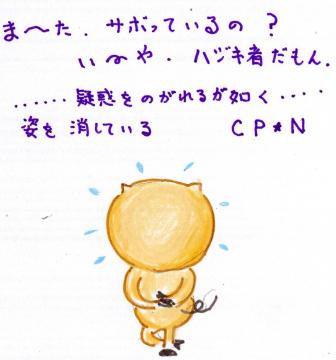 ま〜た．サボっているの？
い〜や．ハジキ者だもん．
......疑惑をのがれるが如く....
姿を消している　CP＊N